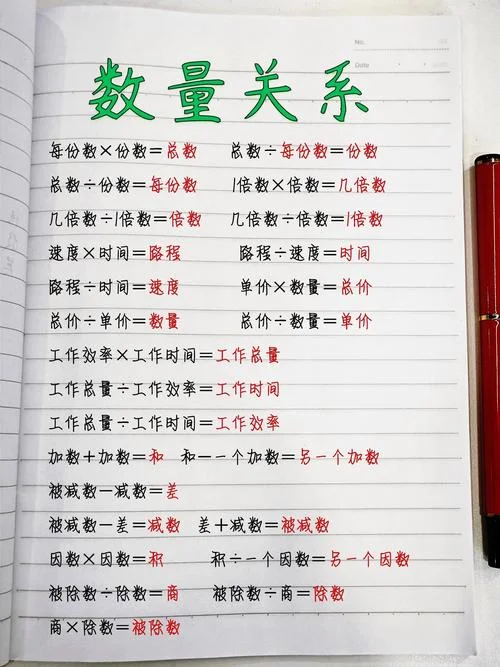 No.
Date
数量关系
每份数×份数=总数 总数÷每份数=份数
总数÷份数=每份数 1倍数×倍数=几倍数
几倍数÷1倍数=倍数 几倍数÷倍数=1倍数
速度×时间=路程 路程÷速度=时间
路程÷时间=速度 单价×数量=总价
总价÷单价=数量 总价÷数量=单价
工作效率×工作时间=工作总量
工作总量÷工作效率=工作时间
工作总量÷工作时间=工作效率
加数+加数=和 和-一个加数=另一个加数
被减数-减数=差
被减数-差=减数 差+减数=被减数
因数×因数=积 积÷一个因数=另一个因数
被除数÷除数=商 被除数÷商=除数
商×除数=被除数